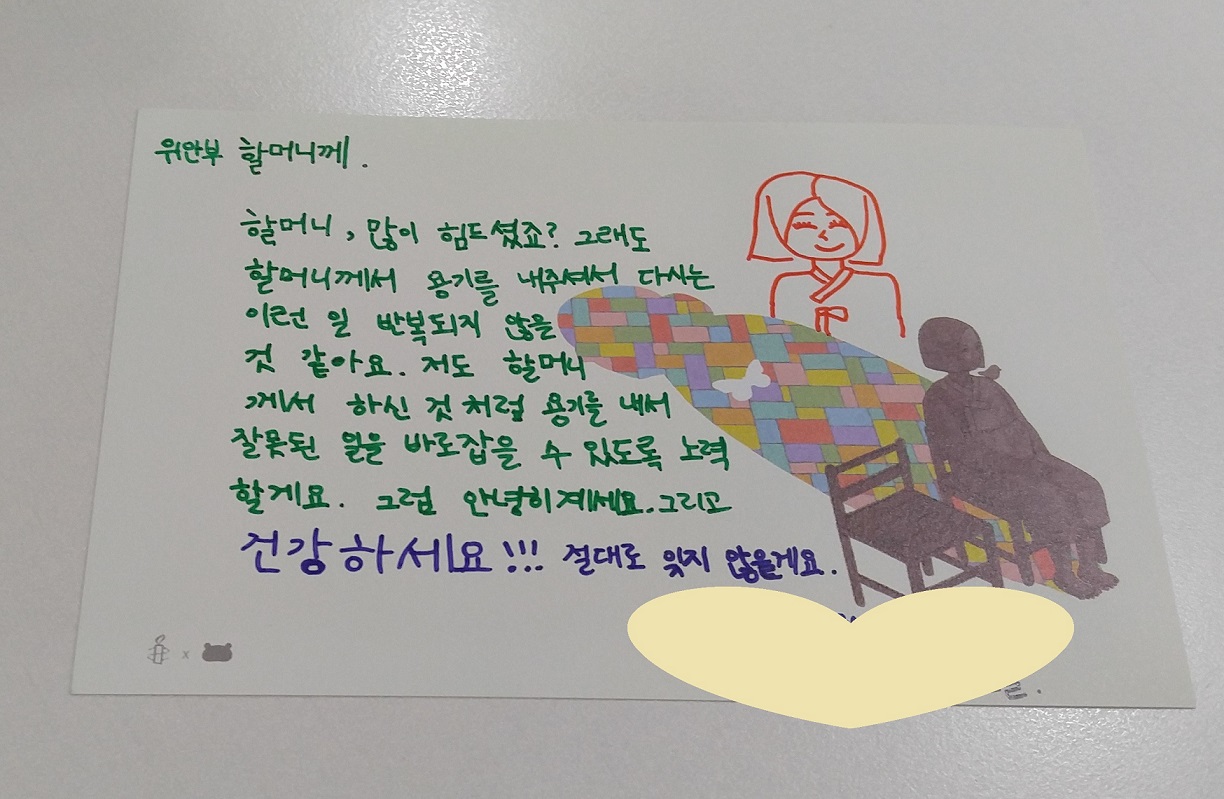 위안부 할머니께.
할머니, 많이 힘드셨죠? 그래도
할머니께서 용기를 내주셔서 다시는
이런 일 반복되지 않을
것 같아요. 저도 할머니
께서 하신 것처럼 용기를 내서
잘못된 일을 바로잡을 수 있도록 노력
할게요. 그럼 안녕히계세요. 그리고
건강하세요!!! 절대로 잊지 않을게요.
x